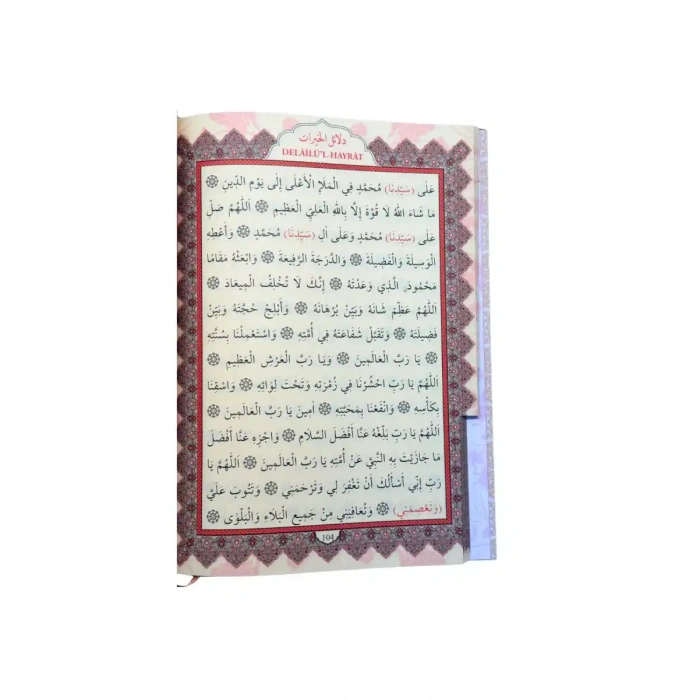 دلائل الخيرات
DELÂİLÜ'L-HAYRÂT
عَلَى (سَيِّدِنَا) مُحَمَّدٍ فِي الْمَلَإِ الْأَعْلَى إِلَى يَوْمِ الدِّينِ ۞
مَا شَاءَ اللهُ لَا قُوَّةَ إِلَّا بِاللهِ الْعَلِيِّ الْعَظِيمِ ۞ اَللّٰهُمَّ صَلِّ
عَلَى (سَيِّدِنَا) مُحَمَّدٍ وَعَلَى اٰلِ (سَيِّدِنَا) مُحَمَّدٍ ۞ وَأَعْطِهِ
الْوَسِيلَةَ وَالْفَضِيلَةَ ۞ وَالدَّرَجَةَ الرَّفِيعَةَ ۞ وَابْعَثْهُ مَقَامًا
مَحْمُودًا، الَّذِي وَعَدْتَهُ ۞ إِنَّكَ لَا تُخْلِفُ الْمِيعَادَ ۞
اَللّٰهُمَّ عَظِّمْ شَانَهُ وَبَيِّنْ بُرْهَانَهُ ۞ وَأَبْلِجْ حُجَّتَهُ وَبَيِّنْ
فَضِيلَتَهُ ۞ وَتَقَبَّلْ شَفَاعَتَهُ فِي أُمَّتِهِ ۞ وَاسْتَعْمِلْنَا بِسُنَّتِهِ
۞ يَا رَبَّ الْعَالَمِينَ ۞ وَيَا رَبَّ الْعَرْشِ الْعَظِيمِ ۞
اَللّٰهُمَّ يَا رَبِّ احْشُرْنَا فِي زُمْرَتِهِ وَتَحْتَ لِوَائِهِ ۞ وَاسْقِنَا
بِكَأْسِهِ ۞ وَانْفَعْنَا بِمَحَبَّتِهِ ۞ اٰمِينَ يَا رَبَّ الْعَالَمِينَ ۞
اَللّٰهُمَّ يَا رَبِّ بَلِّغْهُ عَنَّا أَفْضَلَ السَّلَامِ ۞ وَاجْزِهِ عَنَّا أَفْضَلَ
مَا جَازَيْتَ بِهِ النَّبِيَّ عَنْ أُمَّتِهِ يَا رَبَّ الْعَالَمِينَ ۞ اَللّٰهُمَّ يَا
رَبِّ إِنِّي أَسْأَلُكَ أَنْ تَغْفِرَ لِي وَتَرْحَمَنِي ۞ وَتَتُوبَ عَلَيَّ
(وَتَعْصِمَنِي) ۞ وَتُعَافِيَنِي مِنْ جَمِيعِ الْبَلَاءِ وَالْبَلْوٰى ۞
104